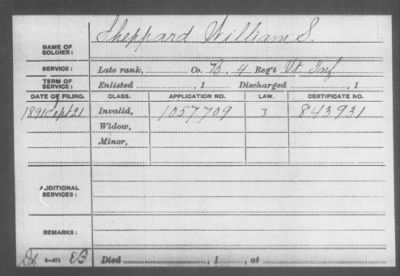 NAME OF SOLDIER: Sheppard William S.
SERVICE: Late rank, Co. B, 4 Reg't Vt. Inf
TERM OF SERVICE: Enlisted , 1 Discharged , 1
DATE OF FILING. CLASS. APPLICATION NO. LAW. CERTIFICATE NO.
1891 Sept 21 Invalid, 1057709 J 843931
Widow,
Minor,
ADDITIONAL SERVICES:
REMARKS:
Died , 1 , at